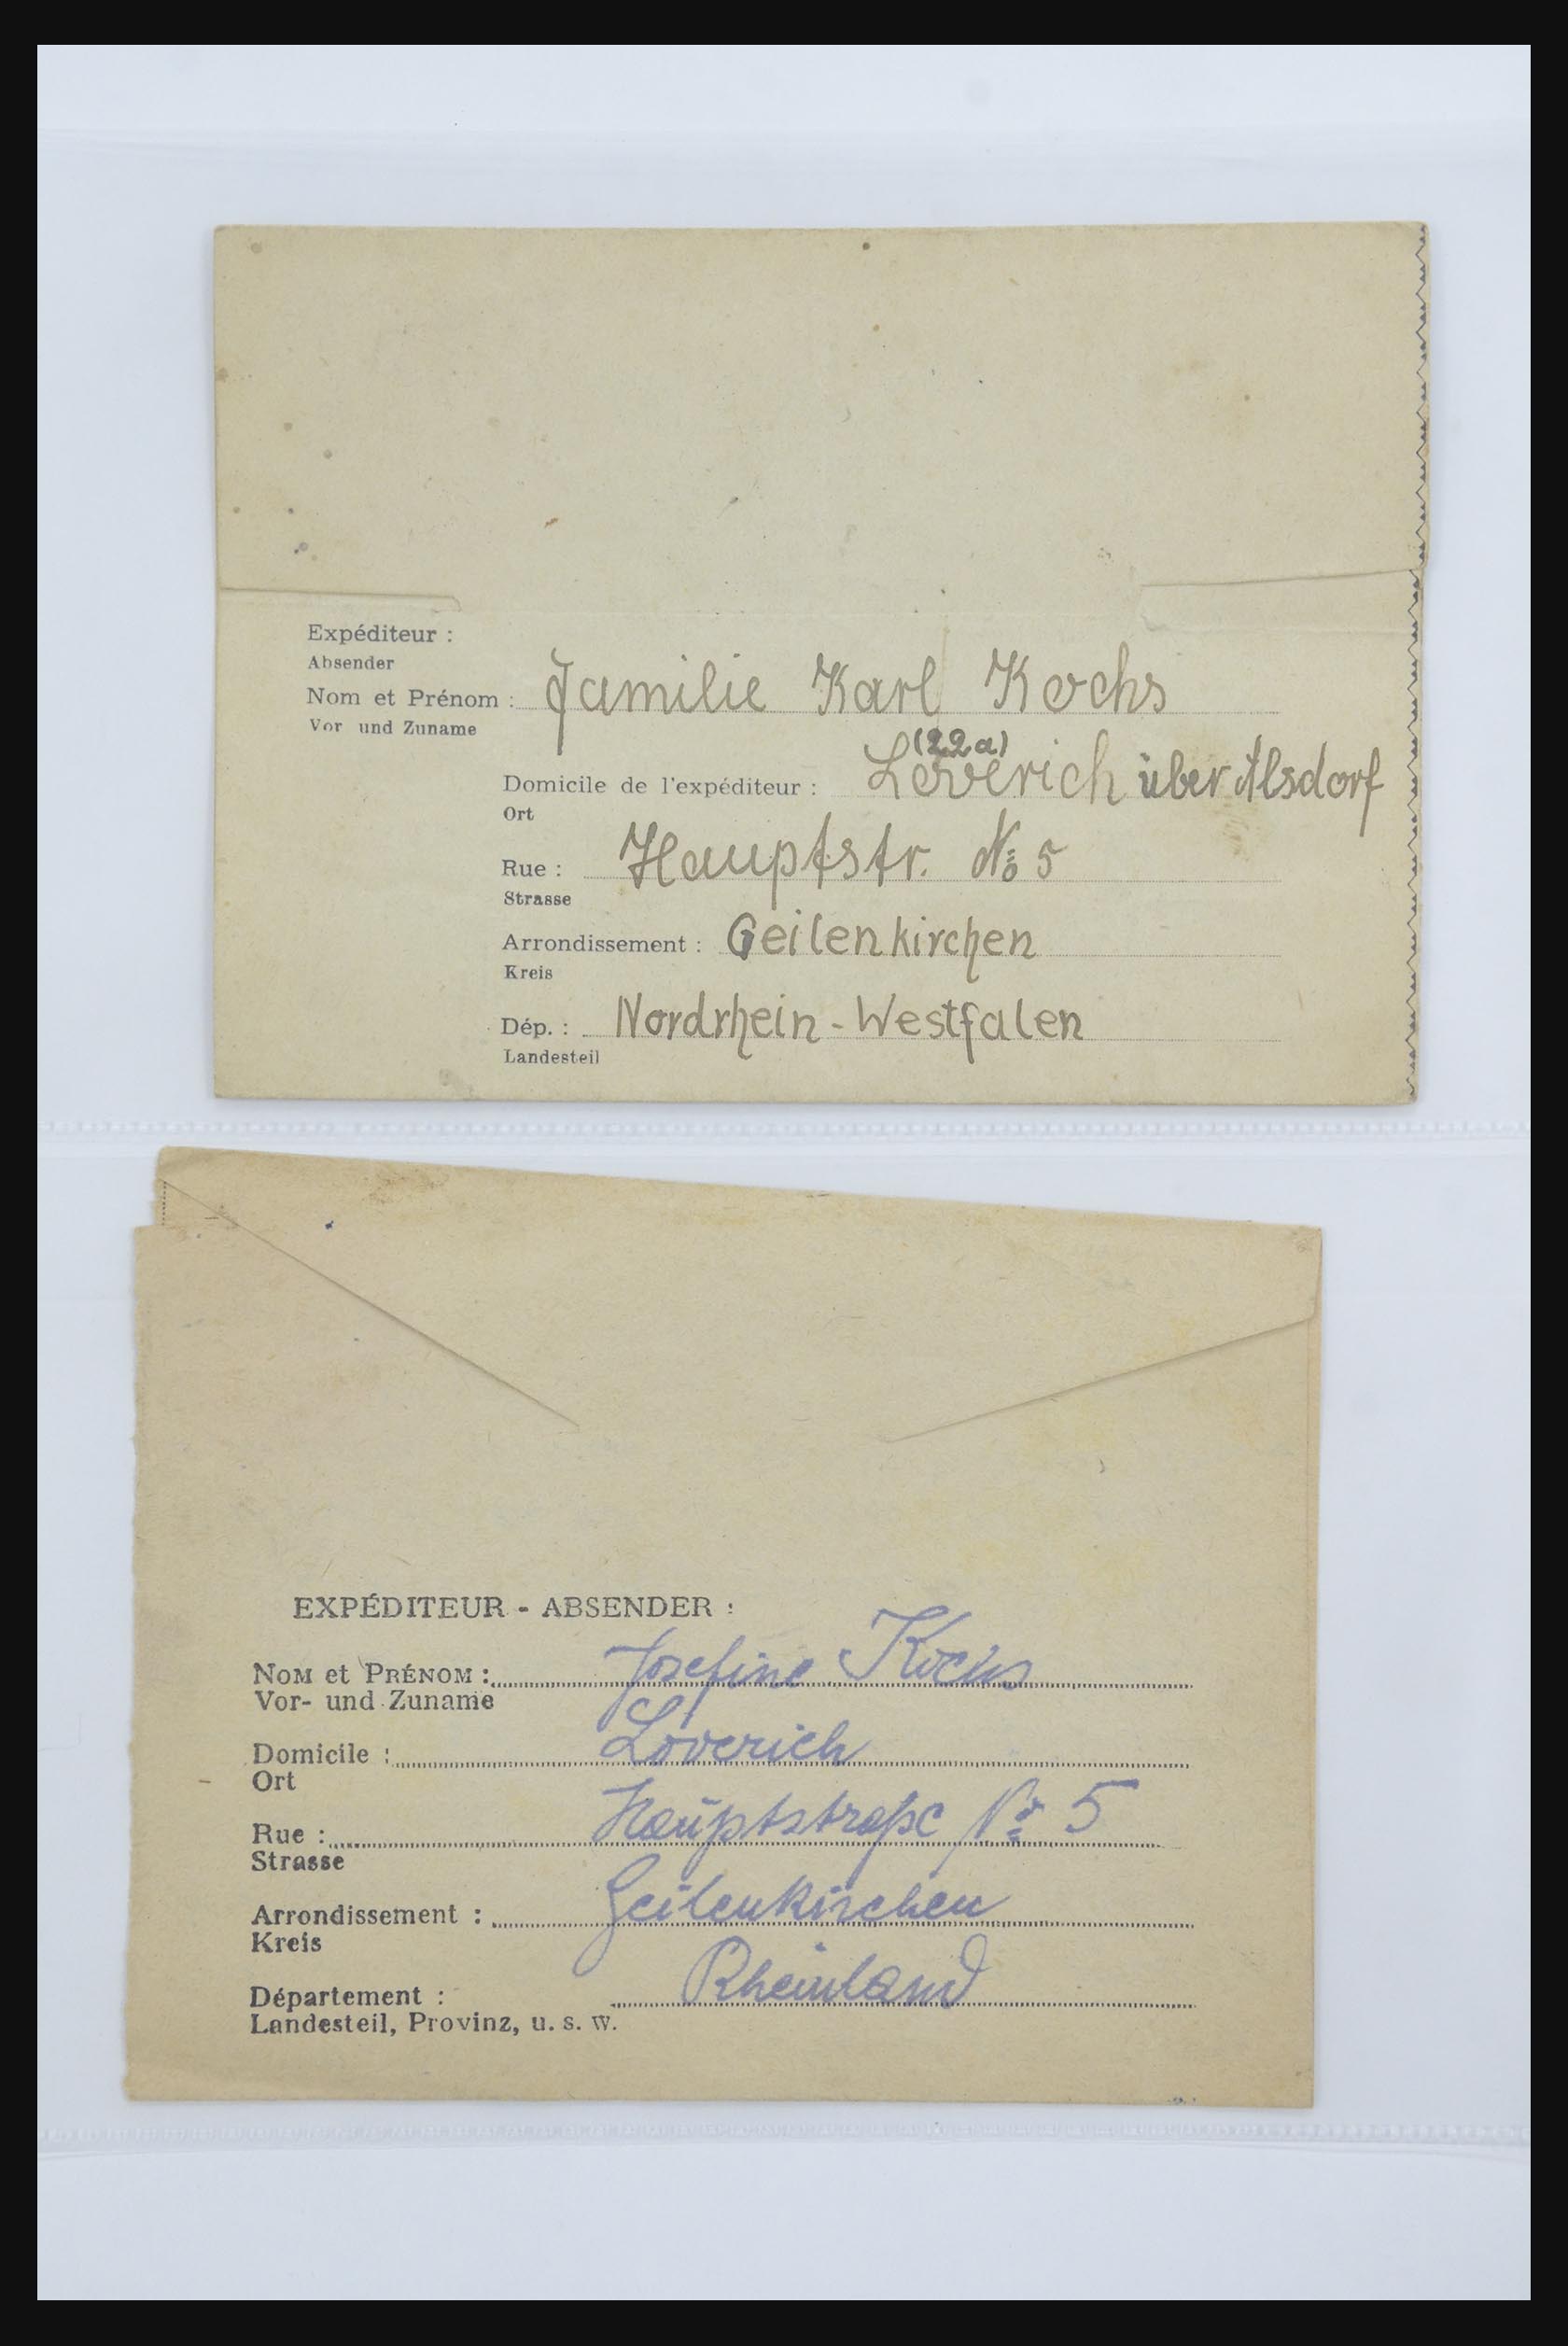 Expéditeur :
Absender
Nom et Prénom : Familie Karl Kochs
Vor und Zuname
(22a)
Domicile de l'expéditeur : Loverich über Alsdorf
Ort
Rue : Hauptstr. No 5
Strasse
Arrondissement : Geilenkirchen
Kreis
Dép. : Nordrhein-Westfalen
Landesteil
EXPÉDITEUR - ABSENDER :
NOM et PRÉNOM : Josefine Kochs
Vor- und Zuname
Domicile : Loverich
Ort
Rue : Hauptstraße No 5
Strasse
Arrondissement : Geilenkirchen
Kreis
Département : Rheinland
Landesteil, Provinz, u. s. w.